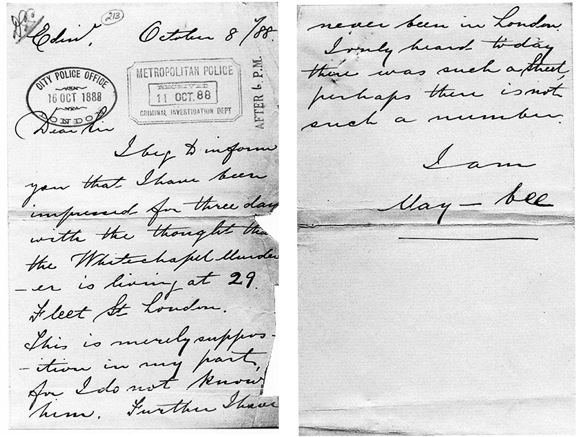 213
Edinr. October 8/88.
CITY POLICE OFFICE
16 OCT 1888
LONDON
METROPOLITAN POLICE
RECEIVED
11 OCT. 88
CRIMINAL INVESTIGATION DEPT
AFTER 6 P.M.
Dear Sir
I beg to inform
you that I have been
impressed for three day
with the thought tha
the Whitechapel Murder
-er is living at 29
Fleet St London.
This is merely suppos-
-ition in my part,
for I do not know
him. Further I have
never been in London.
I only heard today
there was such a street,
perhaps there is not
such a number.
I am
May - bee